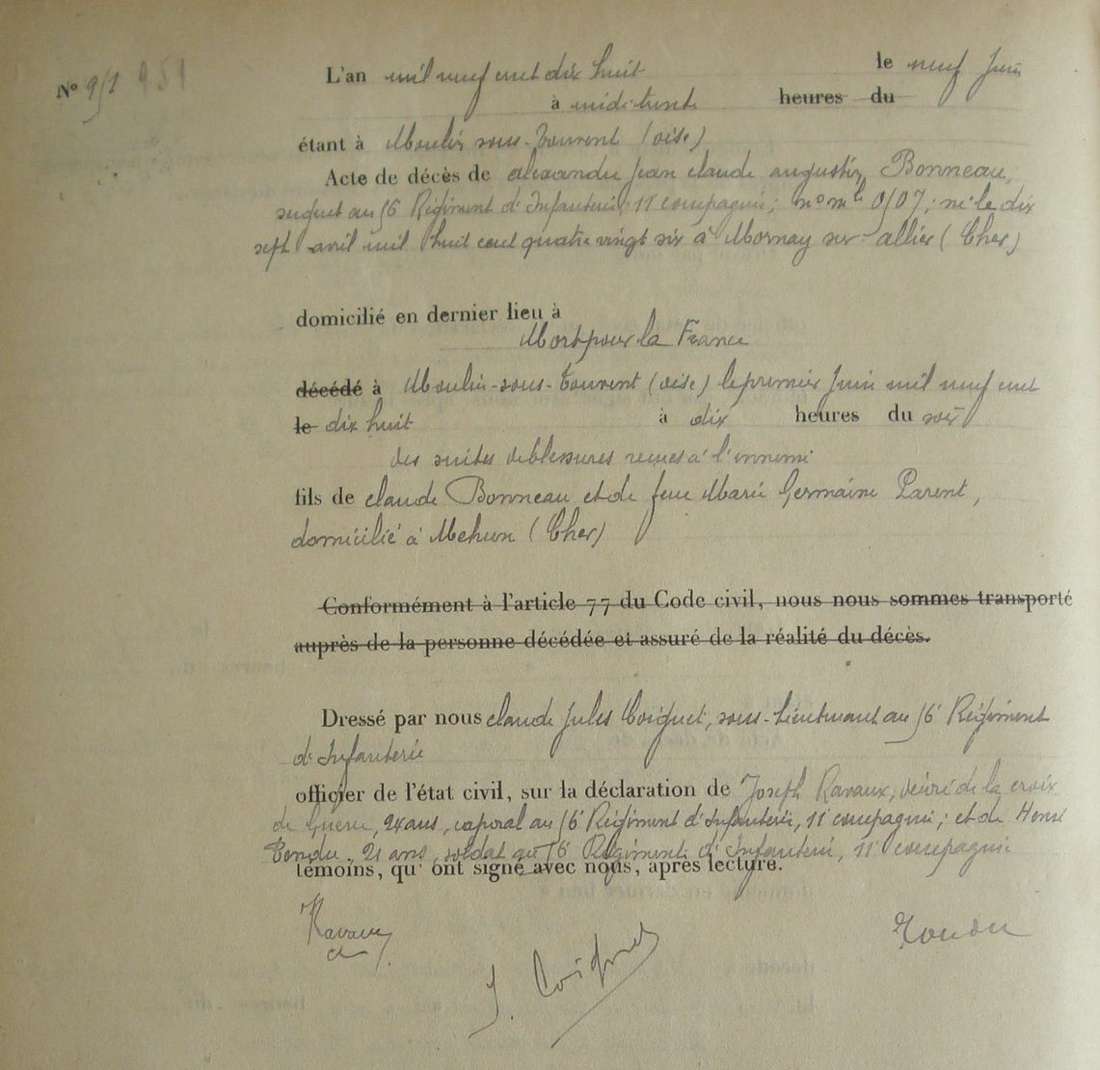 N° 951 951
L'an mil neuf cent dix huit le neuf Juin
à midi trente heures du
étant à Moulin sous-Touvent (oise)
Acte de décès de alexandre Jean claude augustin Bonneau,
sergent au 56 Régiment d'Infanterie, 11e compagnie; n° mle 0507; né le dix
sept avril mil huit cent quatre vingt six à Mornay sur-allier (Cher)
domicilié en dernier lieu à
Mort pour la France
décédé à Moulin-sous-Touvent (oise) le premier Juin mil neuf cent
le dix huit à dix heures du soir
des suites de blessures reçues à l'ennemi
fils de claude Bonneau et de feue Marie Germaine Parent,
domicilié à Mehun (Cher)
Conformément à l'article 77 du Code civil, nous nous sommes transporté
auprès de la personne décédée et assuré de la réalité du décès.
Dressé par nous claude Jules Coignet, sous-lieutenant au 56 Régiment
d'Infanterie
officier de l'état civil, sur la déclaration de Joseph Ravaux, décoré de la croix
de Guerre, 24 ans, caporal au 56 Régiment d'Infanterie, 11e compagnie; et de Henri
Tondu, 21 ans, soldat au 56 Régiment d'Infanterie, 11e compagnie
témoins, qu'ont signé avec nous, après lecture.
Ravaux
J. Coignet
Tondu